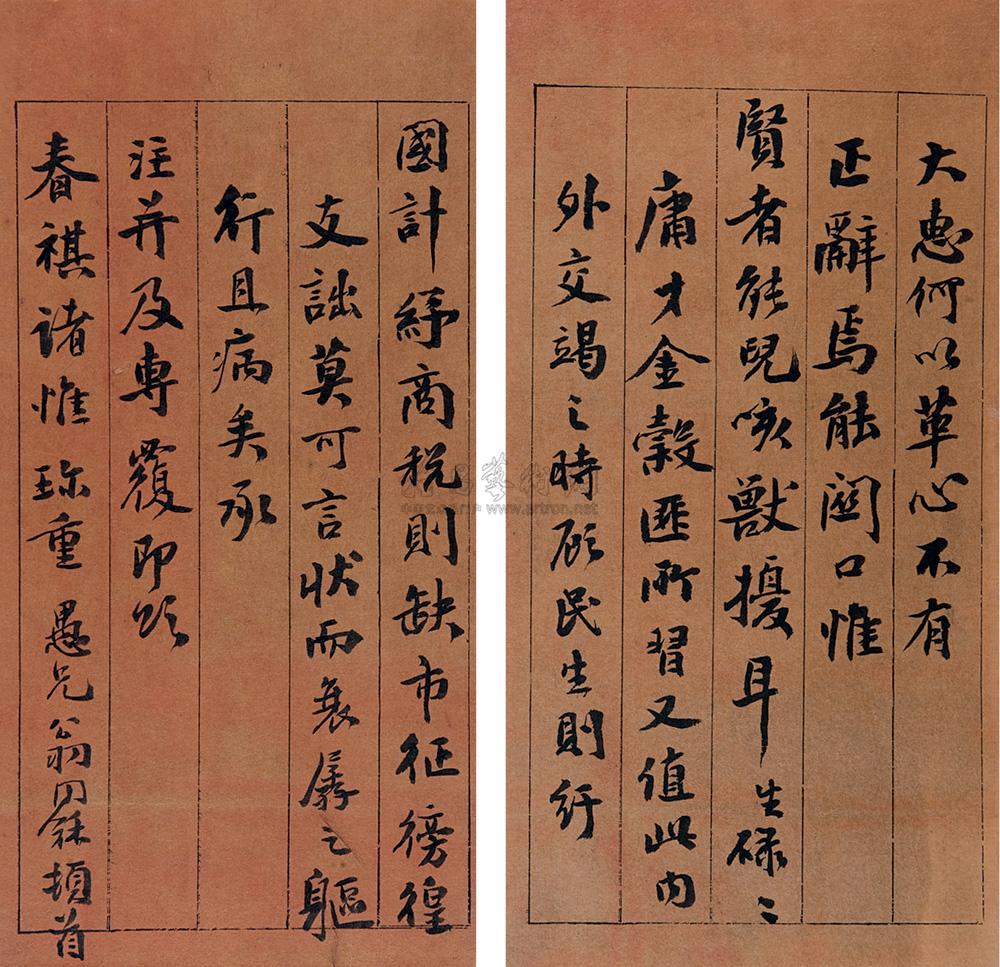 大惠何以革心不有
正辭焉能闗口惟
賢者能兒咳獸擾耳生碌〻
庸才金穀匪所習又值此内
外交竭之時顧民生則紆
國計紓商稅則缺市征徬徨
支詘莫可言状而衰孱之軀
行且病矣承
注并及專覆即頌
春祺诸惟珍重 愚兄翁同龢頓首
www.artron.net